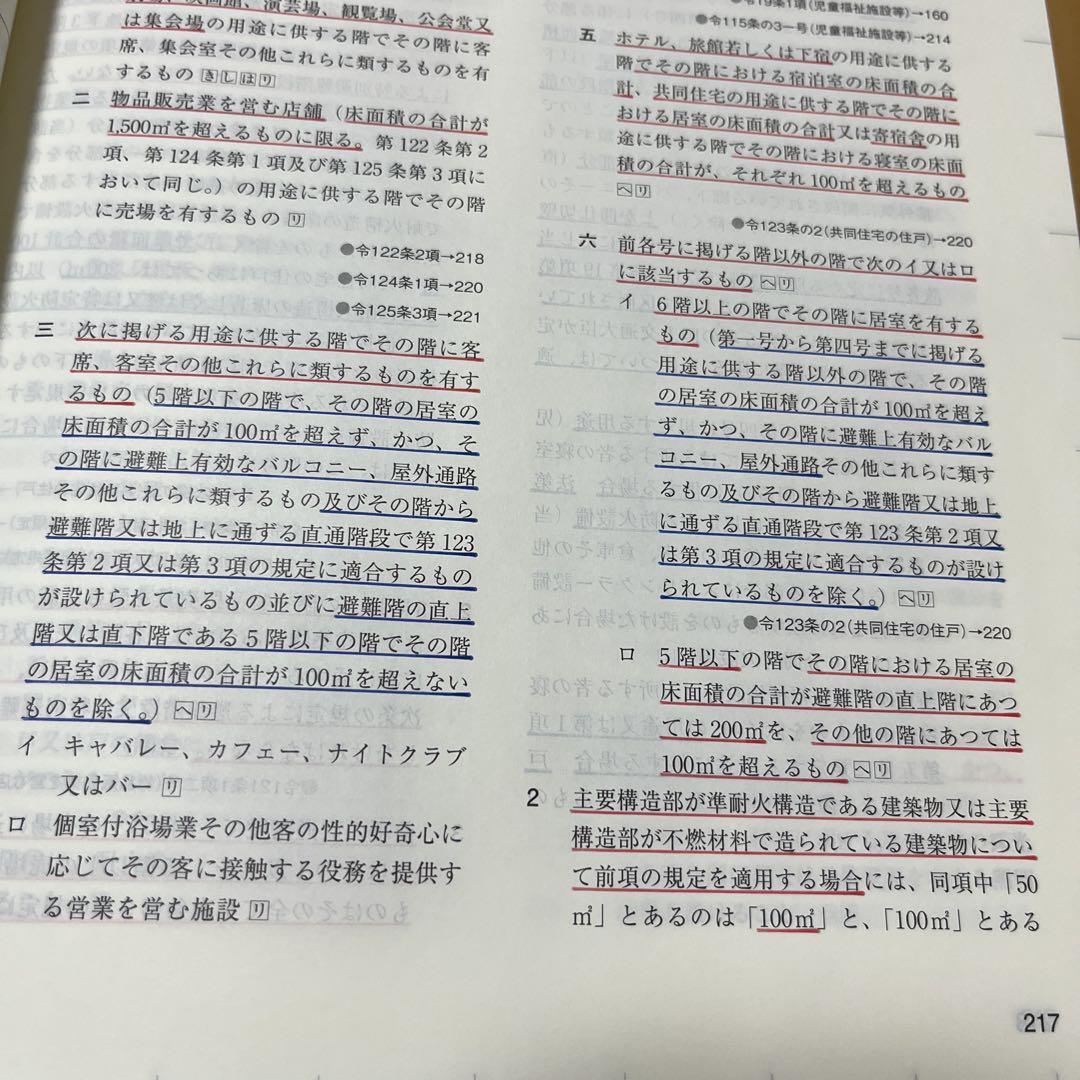 、演芸場、観覧場、公会堂又
は集会場の用途に供する階でその階に客
席、集会室その他これらに類するものを有
するもの きしほリ
二 物品販売業を営む店舗（床面積の合計が
1,500㎡を超えるものに限る。第122条第2
項、第124条第1項及び第125条第3項に
おいて同じ。）の用途に供する階でその階
に売場を有するもの リ
●令122条2項→218
●令124条1項→220
●令125条3項→221
三 次に掲げる用途に供する階でその階に客
席、客室その他これらに類するものを有す
るもの（5階以下の階で、その階の居室の
床面積の合計が100㎡を超えず、かつ、そ
の階に避難上有効なバルコニー、屋外通路
その他これらに類するもの及びその階から
避難階又は地上に通ずる直通階段で第123
条第2項又は第3項の規定に適合するもの
が設けられているもの並びに避難階の直上
階又は直下階である5階以下の階でその階
の居室の床面積の合計が100㎡を超えない
ものを除く。）ヘリ
イ キャバレー、カフェー、ナイトクラブ
又はバー リ
ロ 個室付浴場業その他客の性的好奇心に
応じてその客に接触する役務を提供す
る営業を営む施設 リ
●令19条1項（児童福祉施設等）→160
●令115条の3一号（児童福祉施設等）→214
五 ホテル、旅館若しくは下宿の用途に供する
階でその階における宿泊室の床面積の合
計、共同住宅の用途に供する階でその階に
おける居室の床面積の合計又は寄宿舎の用
途に供する階でその階における寝室の床面
積の合計が、それぞれ100㎡を超えるもの
ヘリ
●令123条の2（共同住宅の住戸）→220
六 前各号に掲げる階以外の階で次のイ又はロ
に該当するもの ヘリ
イ 6階以上の階でその階に居室を有する
もの（第一号から第四号までに掲げる
用途に供する階以外の階で、その階
の居室の床面積の合計が100㎡を超え
ず、かつ、その階に避難上有効なバル
コニー、屋外通路その他これらに類す
るもの及びその階から避難階又は地上
に通ずる直通階段で第123条第2項又
は第3項の規定に適合するものが設け
られているものを除く。）ヘリ
●令123条の2（共同住宅の住戸）→220
ロ 5階以下の階でその階における居室の
床面積の合計が避難階の直上階にあつ
ては200㎡を、その他の階にあつては
100㎡を超えるもの ヘリ
2 主要構造部が準耐火構造である建築物又は主要
構造部が不燃材料で造られている建築物につい
て前項の規定を適用する場合には、同項中「50
㎡」とあるのは「100㎡」と、「100㎡」とある
217